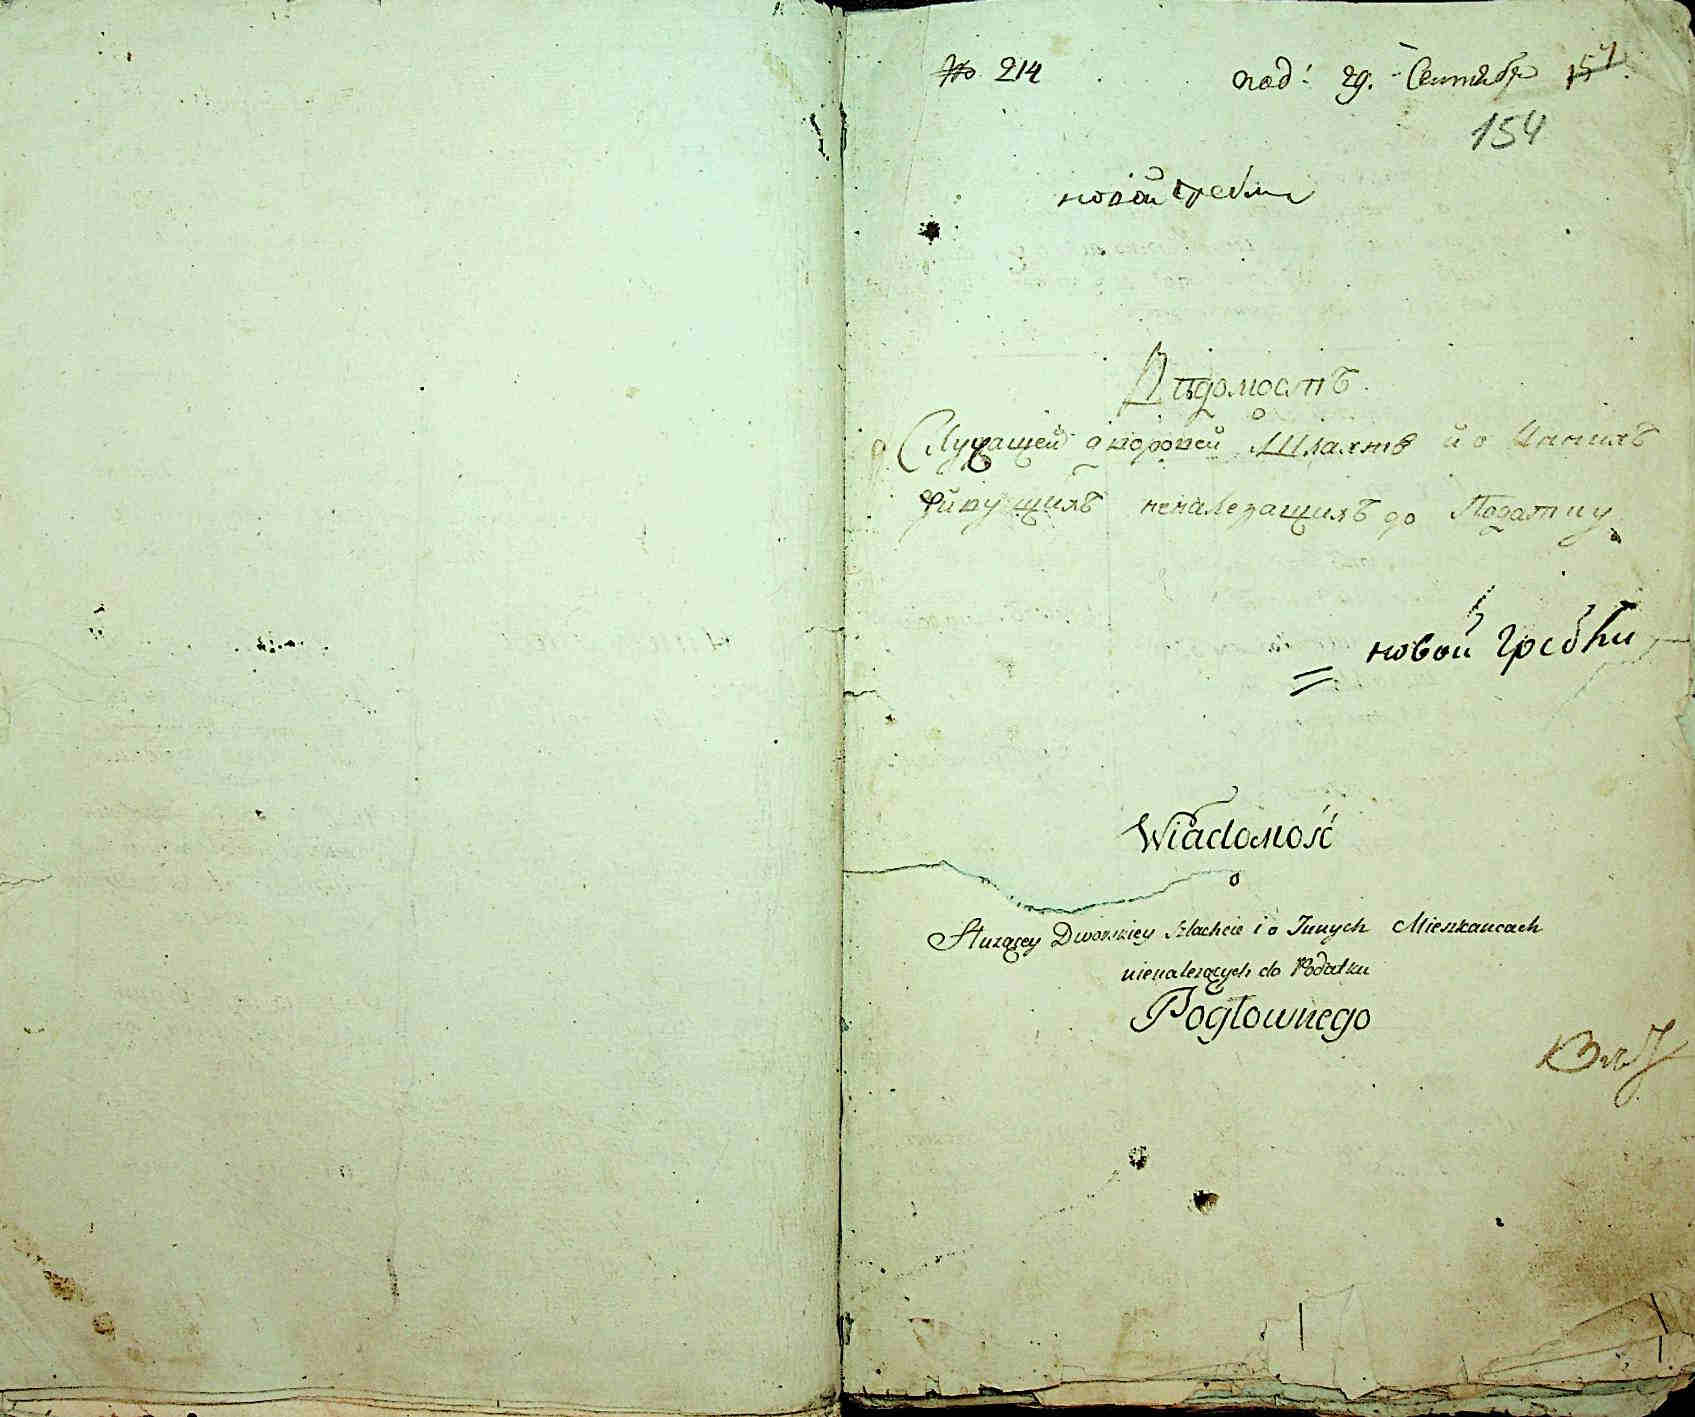 № 214 под: 29. Сентября 154
154
новой гребли
Вѣдомость
о Служащей дворовой Шляхтѣ й о Иныхъ
живущихъ неналежащихъ до Податку
новой гребли
Wiadomość
o
Służącey Dworskiey Szlachcie i o Innych Mieszkancach
nienależących do Podatku
Pogłownego